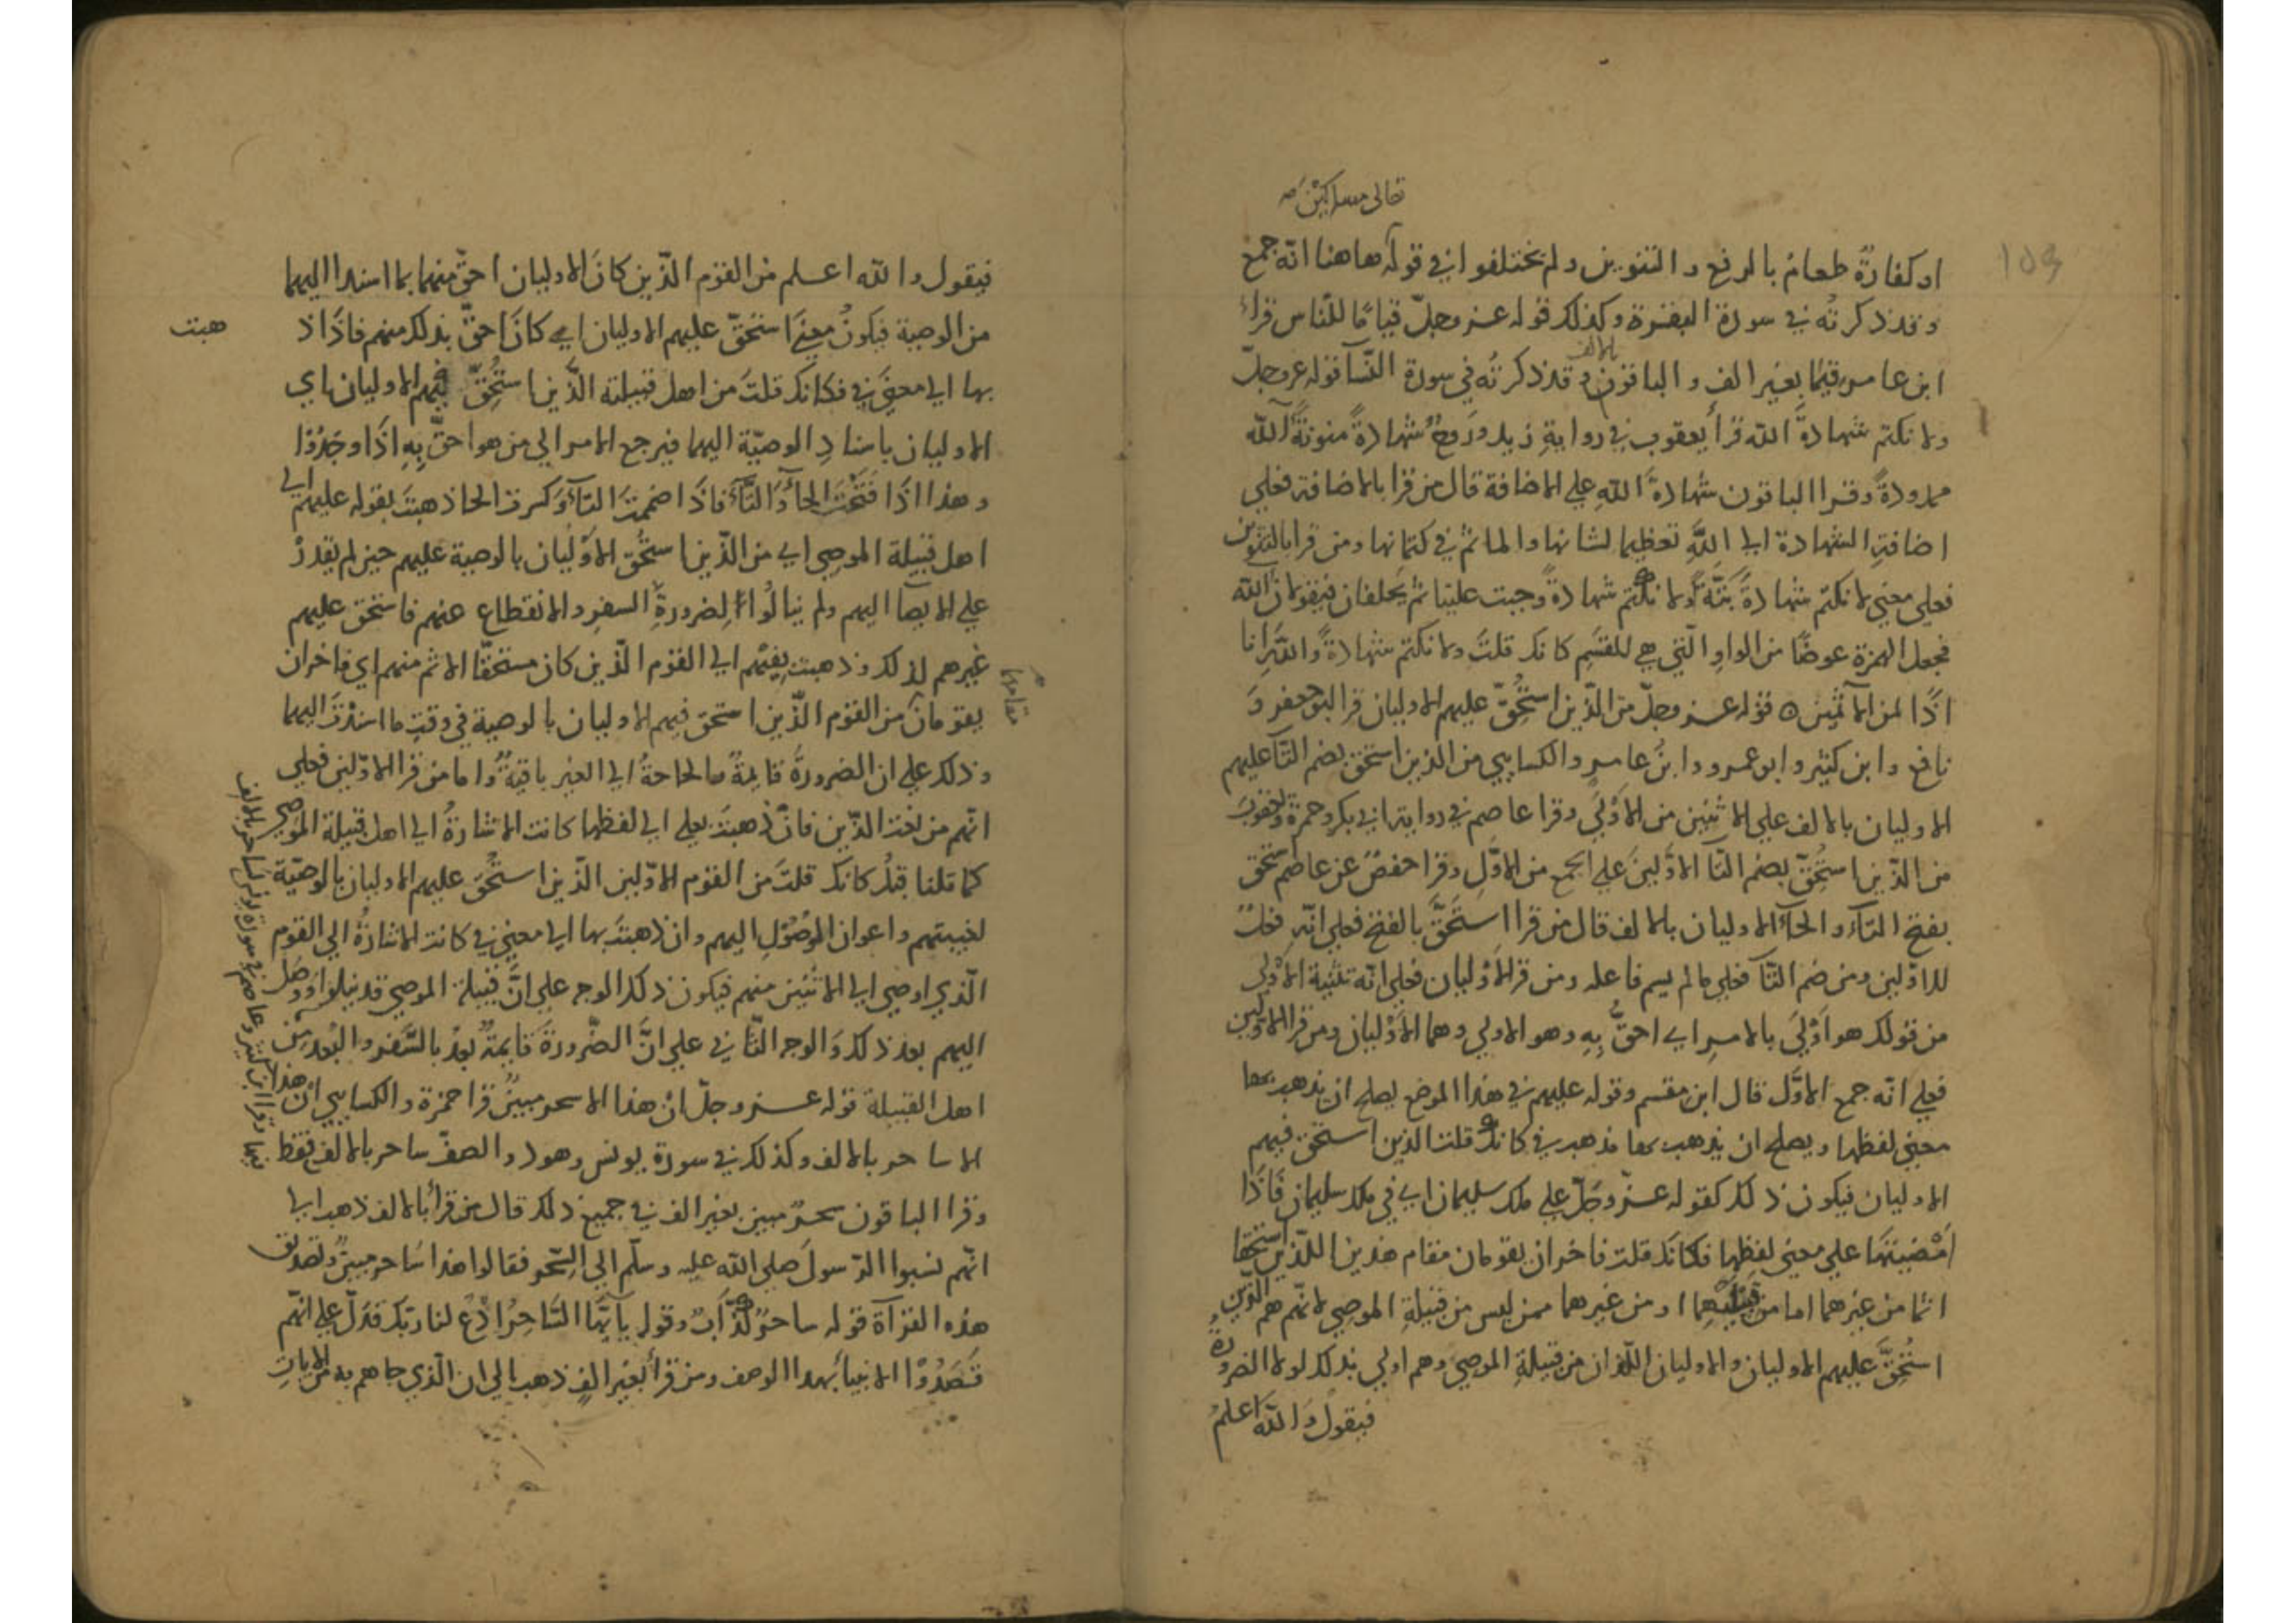 تعالى مساكين
103
او كفارةٌ طعام بالرفع والتنوين ولم يختلفوا في قوله هاهنا انه جمع
وقد ذكرته في سورة البقرة وكذلك قوله عز وجلّ قيامًا للنّاس قراء
ابن عامر قيمًا بغير الف والباقون بالالف وقد ذكرته في سورة النّسآ قوله عز وجلّ
ولا نكتم شهادة الله قرأ يعقوب في رواية زيد وروح شهادةً منونةً آلله
ممدودةً وقرا الباقون شهادة اللهِ علي الاضافة قال من قرا بالاضافة فعلي
اضافةِ الشهادة الي اللهِ تعظيما لشانها والماثم في كتمانها ومن قرا بالتنوين
فعلي معني لا نكتم شهادةً بتّةً ولا نكتم شهادةً وجبت علينا ثم يحلفان فيقولان آلله
فجعل الهمزة عوضًا من الواوِ الّتي هي للقسَمِ كانك قلتَ ولا نكتم شهادةً واللهِ انا
اذًا لمن الآثمين ه قوله عز وجلّ من الّذين استُحِقّ عليهم الاوليان قرا ابو جعفر وَ
نافع وابن كثير وابو عمرو وابنُ عامر والكسايي من الذين استحق بضم التآ عليهم
الاوليان بالالف علي الاثنين من الاَوْلَي وقرا عاصم في رواية ابي بكر وحمزة ويعقوب
من الّذين استُحِقّ بضم التا الاوّلينَ علي الجمع من الاوّلِ وقرا حفصٌ عن عاصم استحق
بفتح التآء والحآ الاوليان بالالف قال من قرا استَحَقَّ بالفتح فعلي انّه فعلٌ
للاوّلين ومن ضم التآ فعلي ما لم يسم فاعله ومن قرا الاَوْليان فعلي انّه تثنية الاَوْلَي
من قولك هو اَوْلَي بالامرِ اي احقُّ بِهِ وهو الاولي وهما الاَوْليان ومن قرا الاوّلين
فعلي انّه جمع الاوّل قال ابن مقسم وقوله عليهم في هذا الموضع يصلح ان يذهب بها
معني لفظها ويصلح ان يذهب بها مذهب في كانك قلت الذين استحق فيهم
الاوليان فيكون ذلك كقوله عزّ وجَلّ علي ملك سليمان اي في ملك سليمان فاَذَا
اَمْضيتَهَا علي معني لفظِها فكانك قلت فاخران يقومان مقام هذين اللّذين استحقا
اثما من غيرهما اما من قبيلتهما او من غيرهما ممن ليس من قبيلةِ الموصي لانّهم هم الّذين
استُحِقَّ عليهم الاوليان والاوليان اللّذان من قبيلةِ الموصي وهم اولي بذلك لولا الضرورةُ
فيقول والله اعلم
فيقول والله اعلم من القوْم الّذين كانَ الاوليان احقّ منهما بما اسندا اليهما
من الوصية فيكونُ معني استحقّ عليهم الاوليان اي كانَ احقّ بذلك منهم فاذَا ذ
هبت
بها الي معني في فكانك قلتَ من اهل قبيلته الّذين استُحِقّ فيهم الاوليان اي
الاوليان باسنادِ الوصيّة اليهما فيرجع الامر الي من هو احقّ بِهِ اذَا وجَدُوا
وهذا اذَا فَتَحْتَ الحآ وَالتّآءَ فاذَا ضممتَ التآ وَكسرت الحا ذهبتَ بقوله عليهم الي
اهل قبيلة الموصي اي من الّذين استُحُق الاَوْليان بالوصية عليهم حين لم يقدرْ
علي الايصآ اليهم ولم ينالُوا لِضرورةِ السفرِ والانقطاع عنهم فاستحق عليهم
غيرهم لذلك وذهبت بِفيْهِم الي القوم الّذين كان مستحقّا الاثم منهم اي فاخران
يقومان من القوْم الّذين استحق فيهم الاوليان بالوصية في وقتِ ما اسندتَ اليهما
وذلك علي ان الضرورةَ قايمةٌ والحاجةُ الي الغير باقيةٌ واما من قرا الاوّلين فعلي
انّهم من نعت الّذين فانْ ذهبتَ بعلي الي لفظها كانت الاشارةُ الي اهل قبيلة الموصي
كما قلنا قبلُ كانك قلتَ من القوم الاوّلين الّذين استُحِق عليهم الاوليان بالوصيّة
لغيبتهم واعواز الوُصُوْلِ اليهم وان ذهبتَ بها الي معني في كانت الاشارةُ الي القوم
الّذي اوصي الي الاثنين منهم فيكون ذلك الوجه علي انَّ قبيلة الموصي قد نيلوا ووُصَل
اليهم بعد ذلك وَالوجه الثّاني علي انَّ الضّرورةَ قايمةٌ بعدُ بالسَّفر والبُعد من
اهل القبيلة قوله عز وجلّ انْ هذا الا سحر مبينٌ قرا حمزة والكسايي ان هذا
الا ساحر بالالف وكذلك في سورة يونس وهود والصفّ ساحر بالالف فقط
وقرا الباقون سحرٌ مبين بغير الف في جميع ذلك قال من قرأ بالالف ذهب الي
انّهم نسبوا الرّسولَ صلي الله عليه وسلّم الي السِّحر فقالوا هذا سَاحر مبينٌ وتصديق
هذه القرآة قوله ساحرٌ كذّابٌ وقوله يآ ايّهَا السَّاحِرُ ادْعُ لنا ربّك فدَلّ علي انّهم
قَصَدُوْا الانبيآ بهذا الوصف ومن قرأ بغير الفٍ ذهب الي ان الّذي جاهم به من الاياتِ
فيها وقرا ابن كثير وعاصم في سورة يونس لساحر بالالف